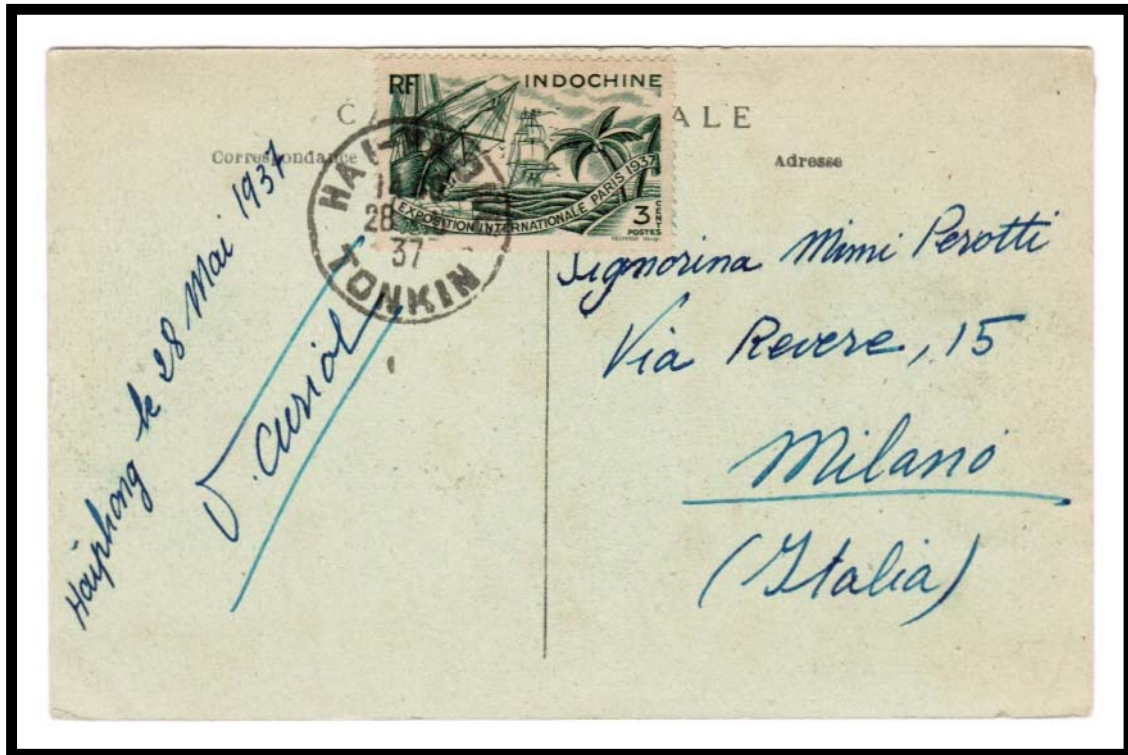 RF INDOCHINE
EXPOSITION INTERNATIONALE PARIS 1937
3
CENT
POSTES
C ALE
Correspondance
Adresse
HAI-
14
28
37
TONKIN
Haiphong le 28 Mai 1937
V. Curiol
Signorina Mimi Perotti
Via Revere, 15
Milano
(Italia)